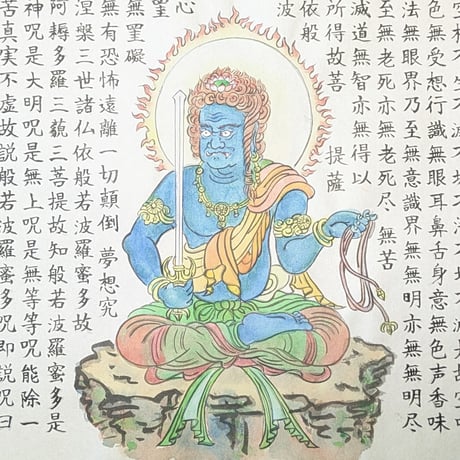 空相不生不滅不垢不浄不増不減是故空中
色無受想行識無眼耳鼻舌身意無色声香味
法無眼界乃至無意識界無無明亦無無明尽
至無老死亦無老死尽 無苦
滅道無智亦無得以
所得故菩 提薩
依般
波
心
罣
無罣礙
無有恐怖遠離一切顛倒 夢想究
涅槃三世諸仏依般若波羅蜜多故
阿耨多羅三藐三菩提故知般若波羅蜜多是
神呪是大明呪是無上呪是無等等呪能除一
苦真実不虚故説般若波羅蜜多呪即説呪曰